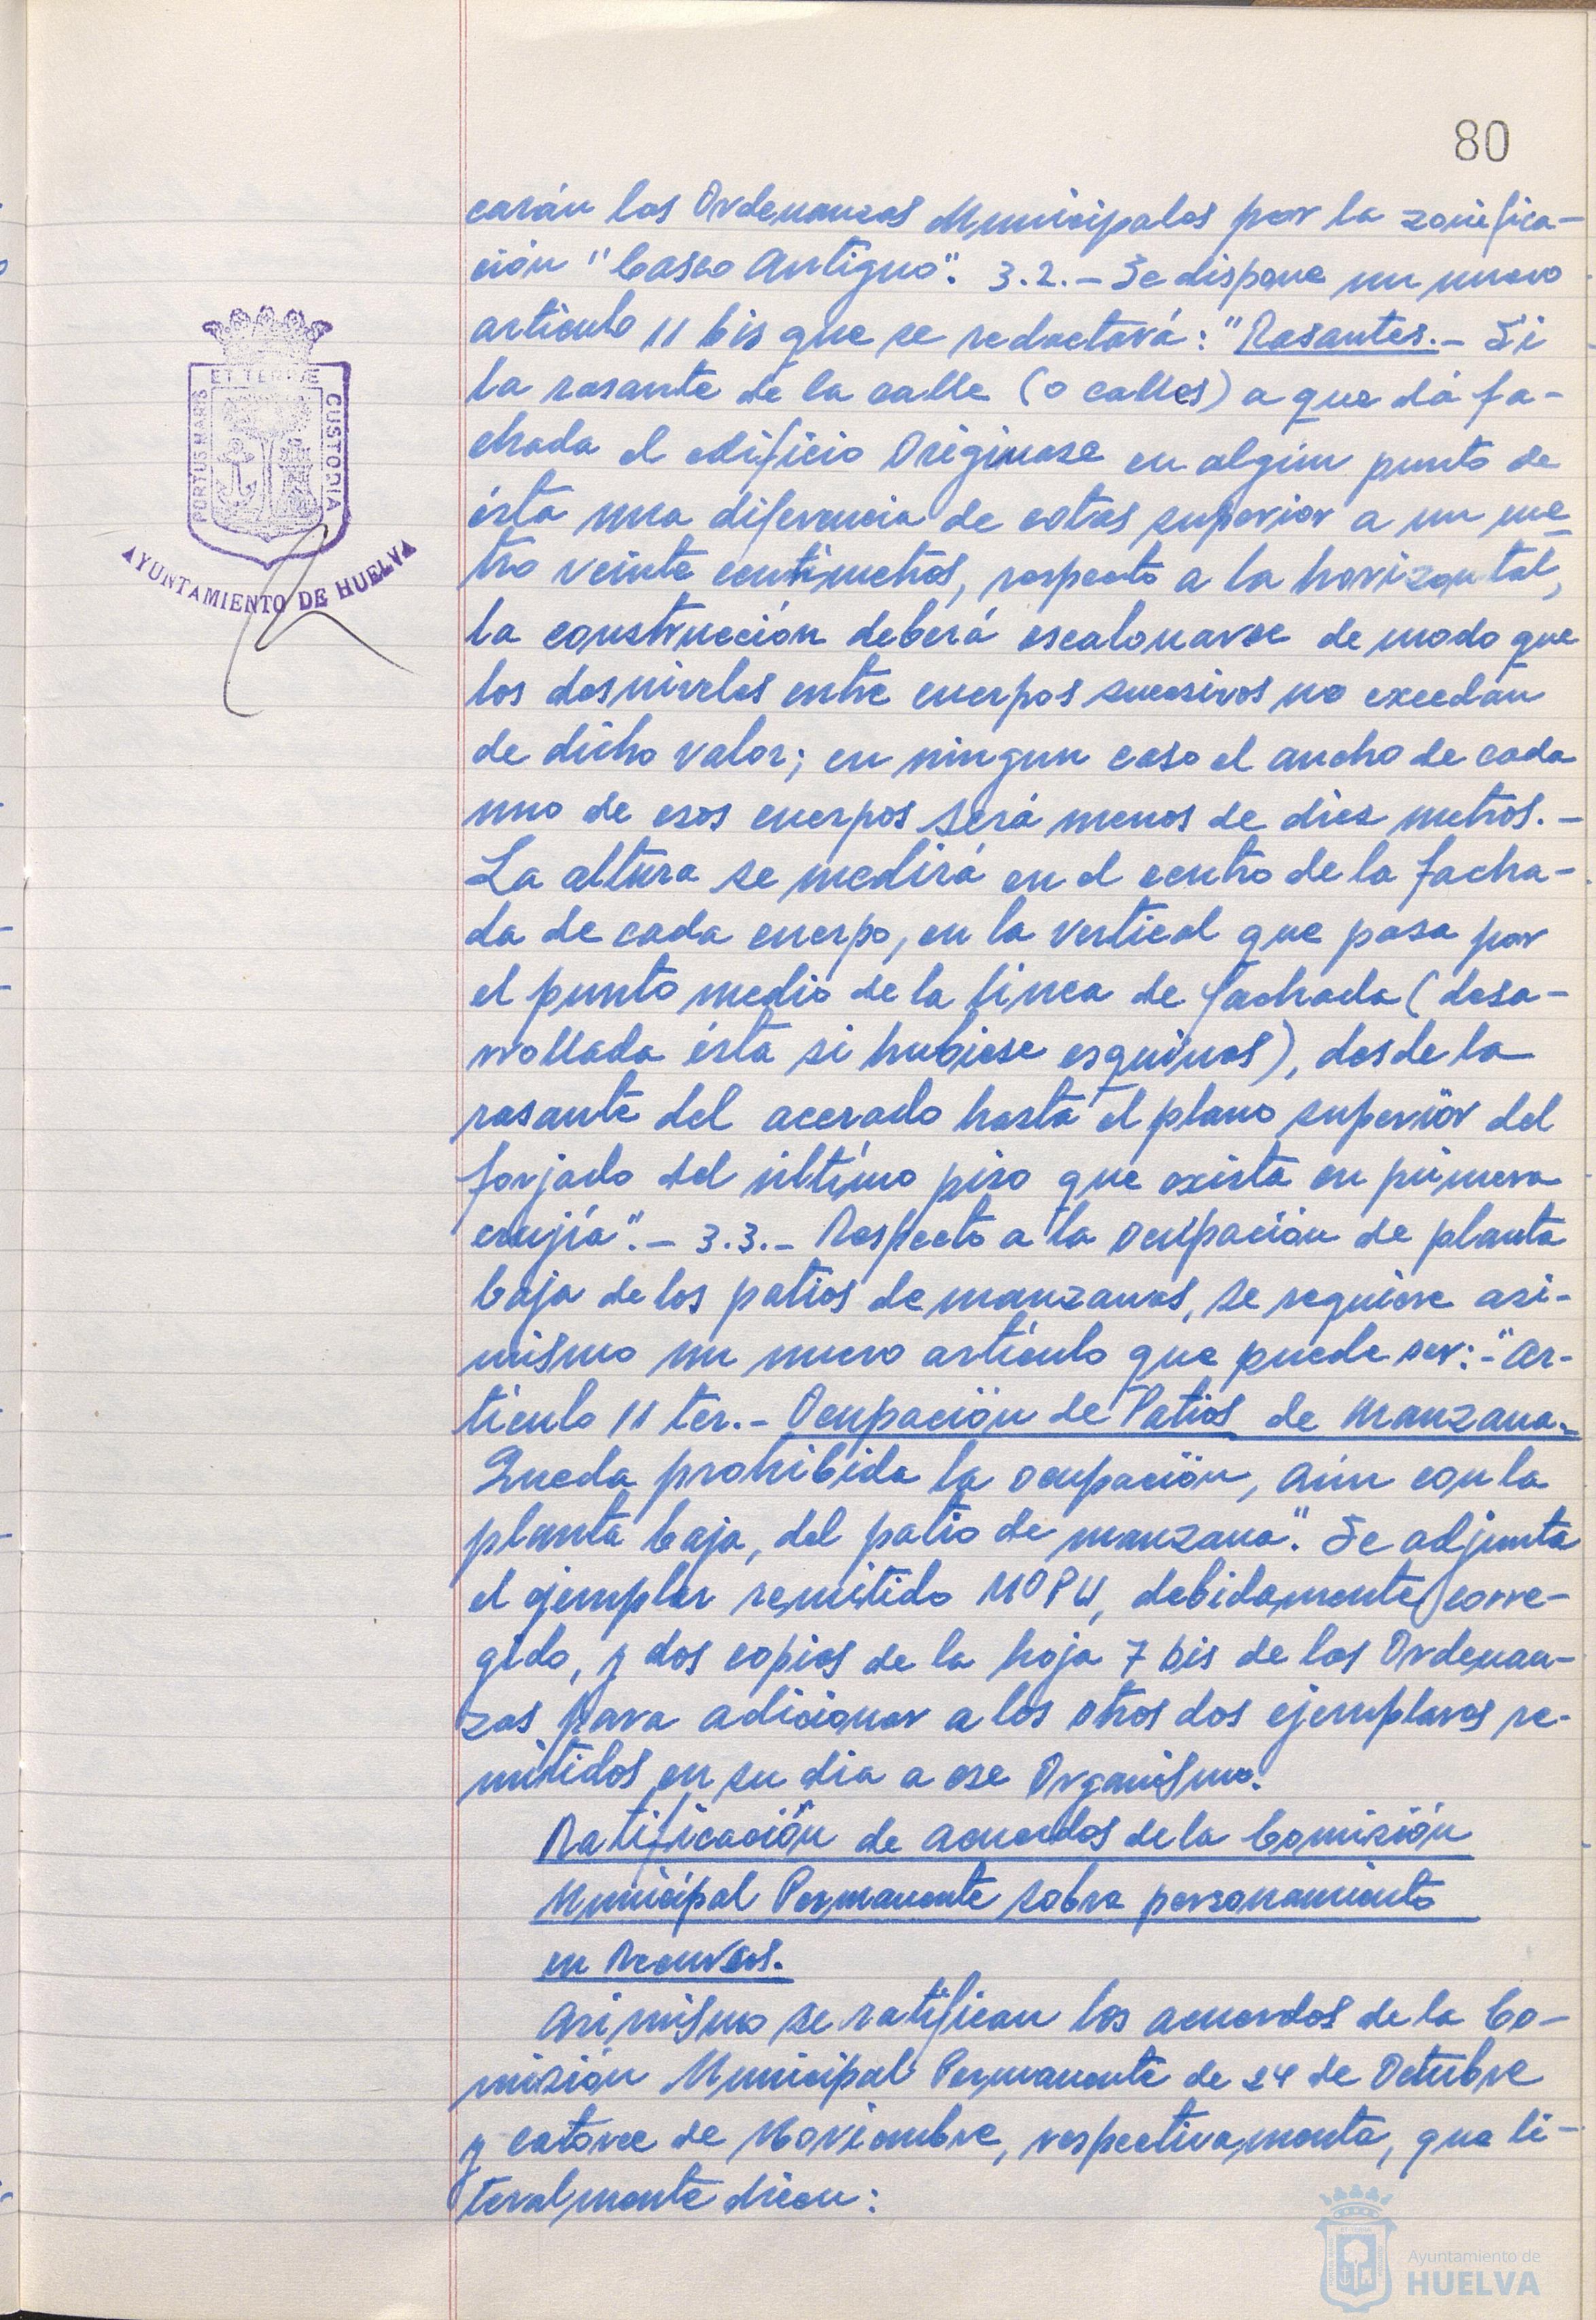 80
carán las Ordenanzas Municipales por la zonifica-
ción "Casco Antiguo". 3.2.- Se dispone un nuevo
artículo 11 bis que se redactará: "Rasantes.- Si
la rasante de la calle (o calles) a que dá fa-
chada el edificio Originase en algún punto de
ésta una diferencia de cotas superior a un me
tro veinte centímetros, respecto a la horizontal,
la construcción deberá escalonarse de modo que
los desniveles entre cuerpos sucesivos no excedan
de dicho valor; en ningun caso el ancho de cada
uno de esos cuerpos será menos de diez metros.-
La altura se medirá en el centro de la facha-
da de cada cuerpo, en la vertical que pasa por
el punto medio de la línea de fachada (desa-
rrollada ésta si hubiese esquinas), desde la
rasante del acerado hasta el plano superior del
forjado del último piso que exista en primera
crujía".- 3.3.- Respecto a la ocupación de planta
baja de los patios de manzanas, se requiere asi-
mismo un nuevo artículo que puede ser:-"Ar-
tículo 11 ter.- Ocupación de Patios de Manzana.-
Queda prohibida la ocupación, aún con la
planta baja, del patio de manzana". Se adjunta
el ejemplar remitido MOPU, debidamente corre-
gido, y dos copias de la hoja 7 bis de las Ordenan-
zas para adicionar a los otros dos ejemplares re-
mitidos en su dia a ese Organismo.
Ratificación de acuerdos de la Comisión
Municipal Permanente sobre personamiento
en Recursos.
Asimismo se ratifican los acuerdos de la Co-
misión Municipal Permanente de 24 de Octubre
y catorce de Noviembre, respectivamente, que li-
teralmente dicen:
PORTUS MARIS
ET TERRAE
CUSTODIA
AYUNTAMIENTO DE HUELVA
Ayuntamiento de
HUELVA